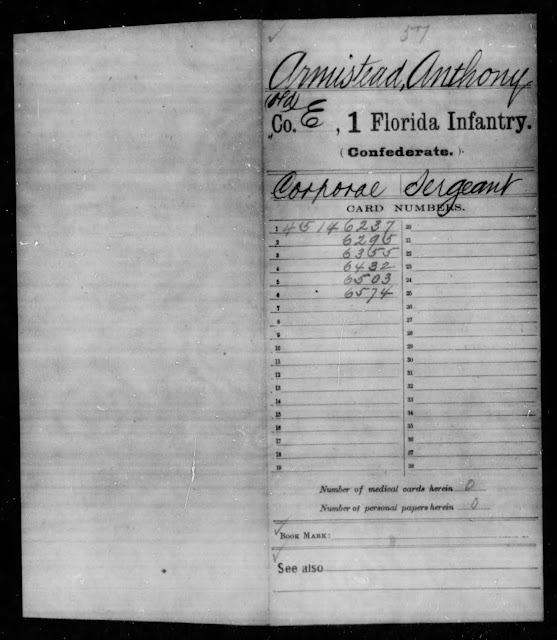 57
Armistead, Anthony
(Old)
Co. E, 1 Florida Infantry.
(Confederate.)
Corporal Sergeant
CARD NUMBERS.
1 45146237 20
2 6295 21
3 6355 22
4 6432 23
5 6503 24
6 6574 25
7 26
8 27
9 28
10 29
11 30
12 31
13 32
14 33
15 34
16 35
17 36
18 37
19 38
Number of medical cards herein 0
Number of personal papers herein 0
BOOK MARK:
See also